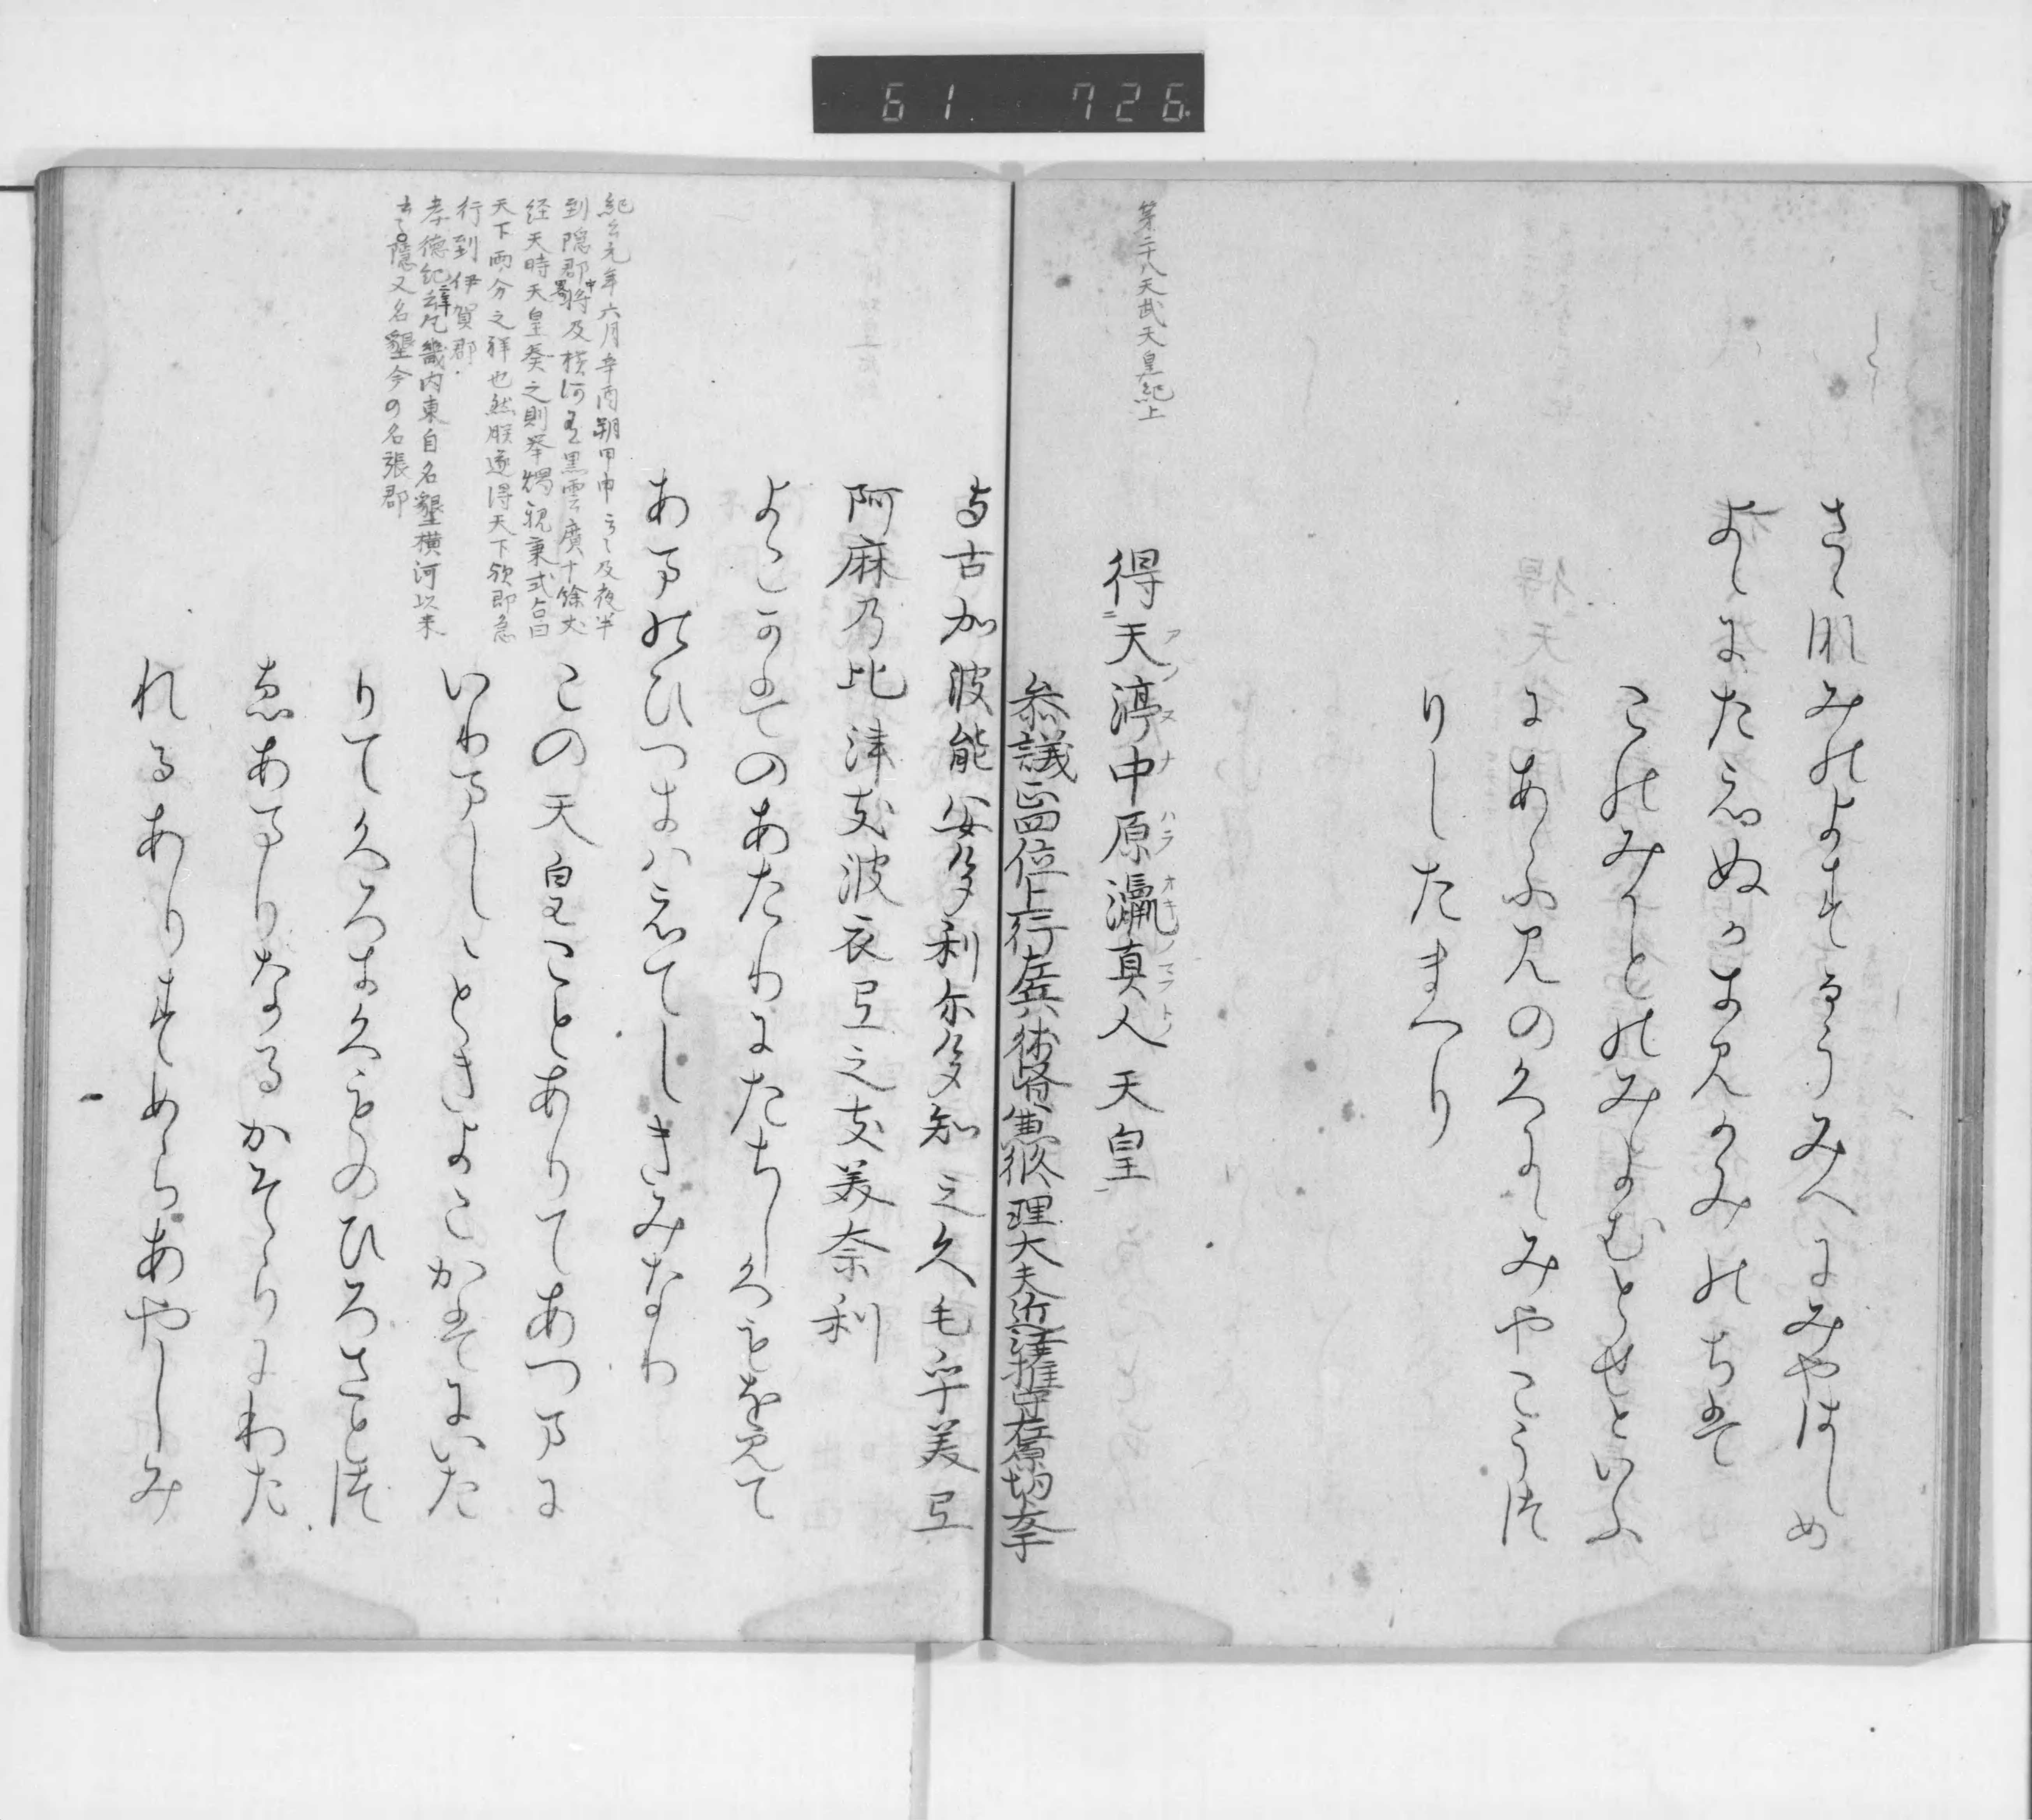 61 726
さゝ浪みのよするうみへにみやはしめ
よゝにたえぬかきみかみのちそ
このみかとのみよむとせといふ
にあふみのくにゝみやこうつ
りしたまへり
第二十八天武天皇紀上
得天渟中原瀛真人天皇
ニ アノ ヌ ナ ハラ オキノ マフトノ
参議正四位上行左兵衛督兼修理大夫近江権守在原朝
与古加波能安多利尓多知之久毛乎美弖
阿麻乃比津支波衣弖之支美奈利
よこかはのあたりにたちしくもを見て
あまのひつきはえてしきみなり
この天皇ことありてあつまに
いりましゝときよこかはにいた
りてくろきくものひろさとつ
ゑあまりなるかそらにわた
れるありすめらあやしみ
紀云元年六月辛酉朔甲申云々及夜半
到隠郡中略将及横河有黒雲広十餘丈
経天時天皇異之則挙燭親秉式占曰
天下両分之祥也然朕遂得天下歟即急
行到伊賀郡
孝徳紀二年凡畿内東自名墾横河以来
云々○隠又名墾今の名張郡